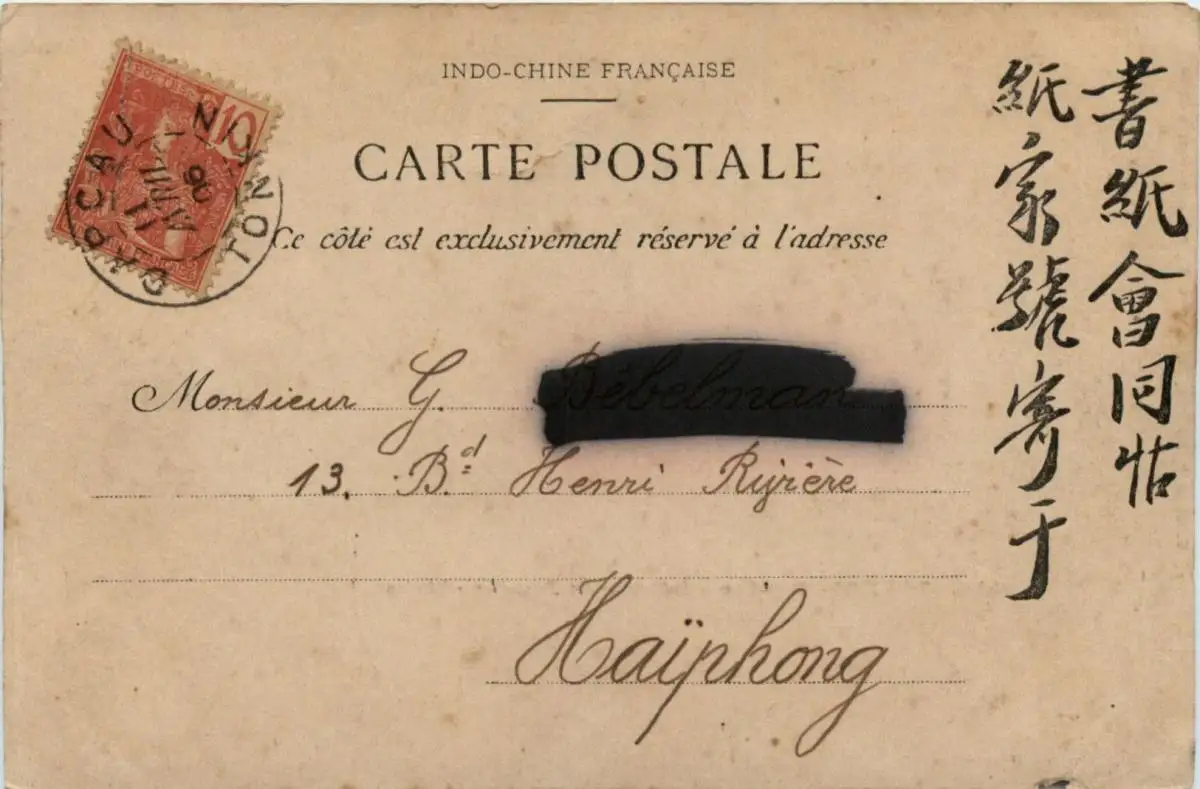 INDO-CHINE FRANÇAISE
CARTE POSTALE
Ce côté est exclusivement réservé à l'adresse
POSTES
10
CAPCAU TONKIN
11 AVRIL 06
Monsieur G.
13. Bd Henri Rivière
Haïphong
書紙會同帖
紙家號寄于